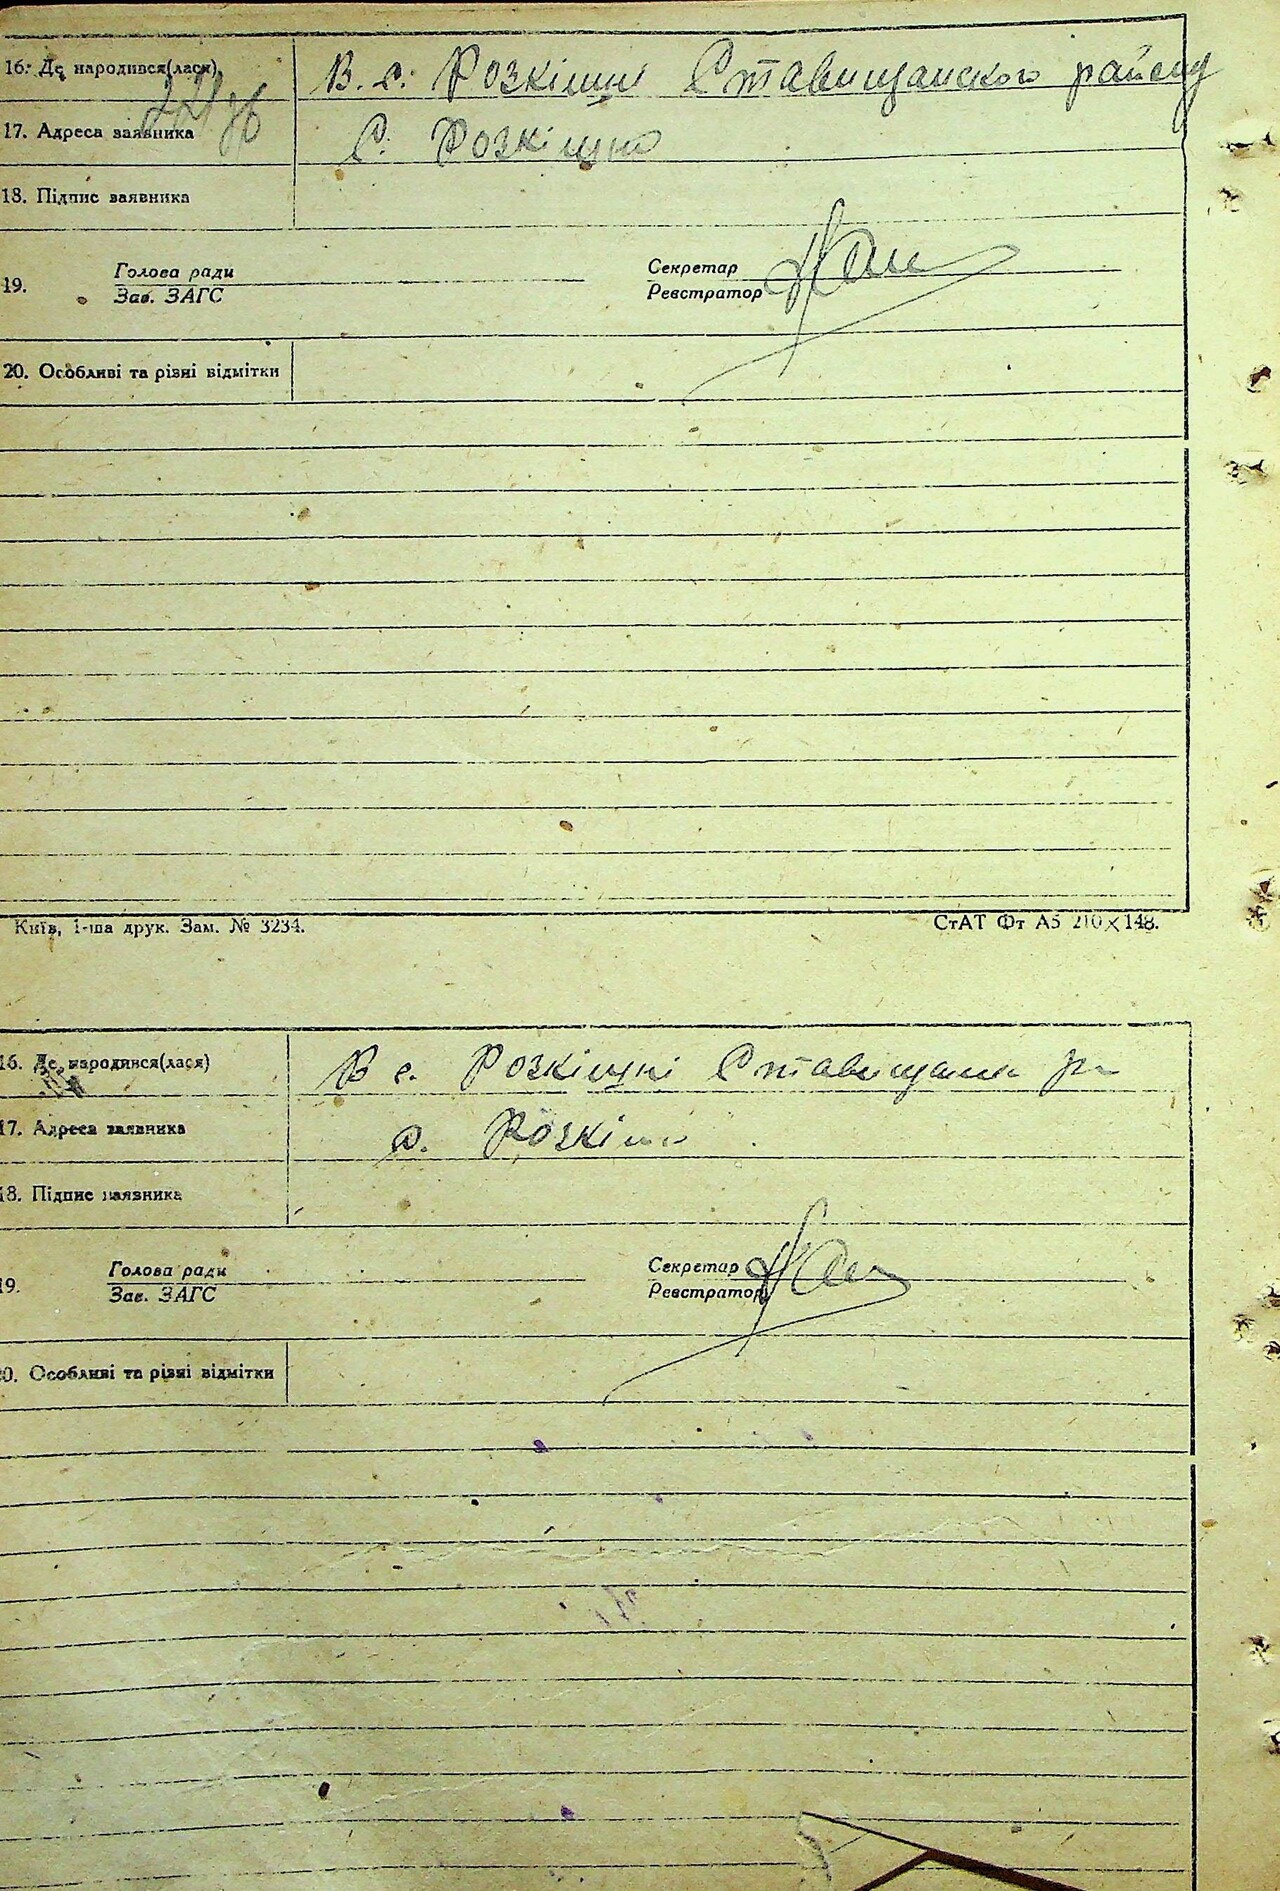 16. Де народився(лася) В. с. Розкішні Ставищанского району
17. Адреса заявника С. Розкішна
18. Підпис заявника
Голова ради Секретар
19.
Зав. ЗАГС Реєстратор
20. Особливі та різні відмітки
Київ, 1-ша друк. Зам. № 3234. СтАТ Фт А5 210×148.
16. Де народився(лася) В с. Розкішні
17. Адреса заявника с.
18. Підпис заявника
Голова ради Секретар
19.
Зав. ЗАГС Реєстратор
20. Особливі та різні відмітки